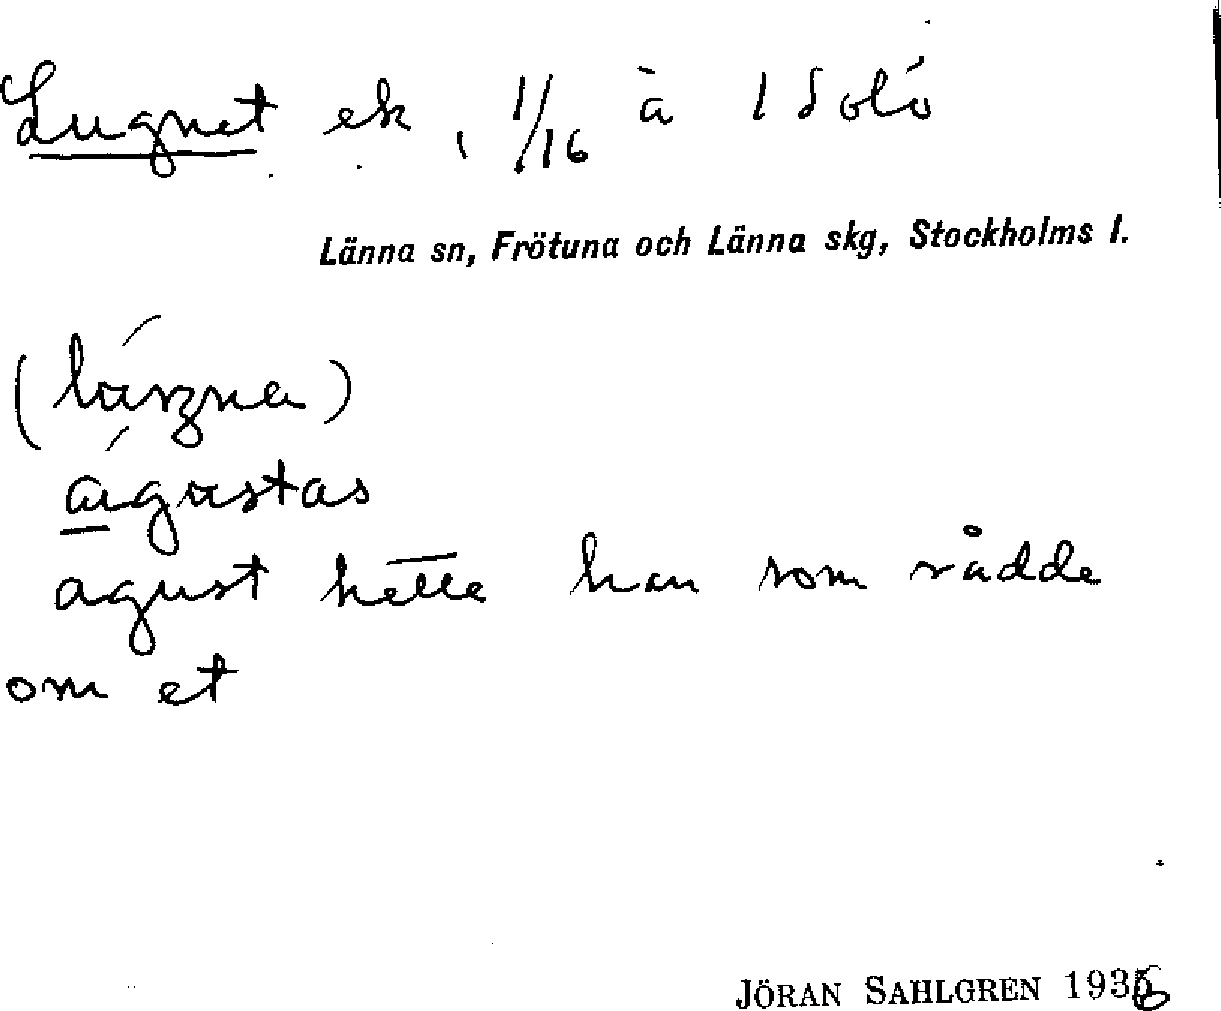 Lugnet ek, 1/16 à 1 Solö
Länna sn, Frötuna och Länna skg, Stockholms l.
agust hette han som rådde
om et
JÖRAN SAHLGREN 1936